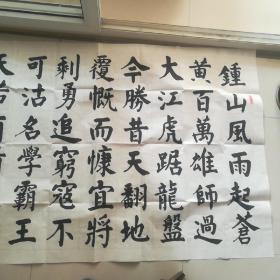 鍾山風雨起蒼
黃百萬雄師過
大江虎踞龍盤
今勝昔天翻地
覆慨而慷宜將
剩勇追窮寇不
可沽名學霸王
天若有